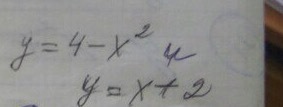 y = 4 - x² и
y = x + 2